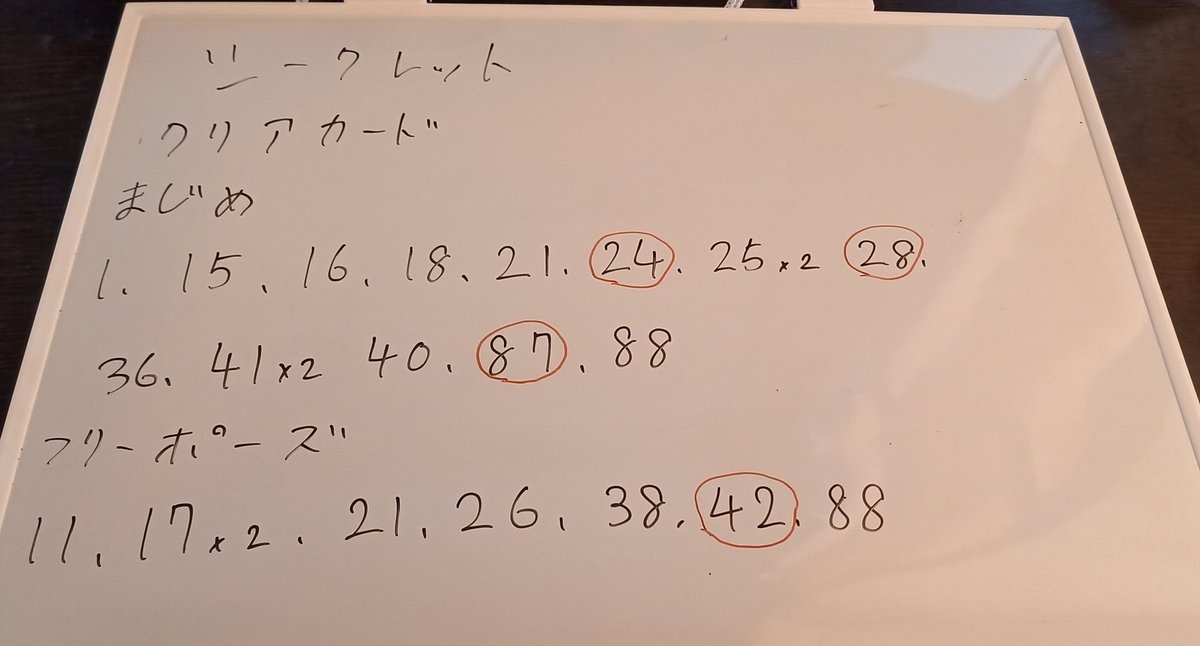 シークレット
クリアカード
まじめ
1. 15. 16. 18. 21. 24. 25×2 28.
36. 41×2 40. 87. 88
フリーポーズ
11. 17×2. 21. 26. 38. 42. 88